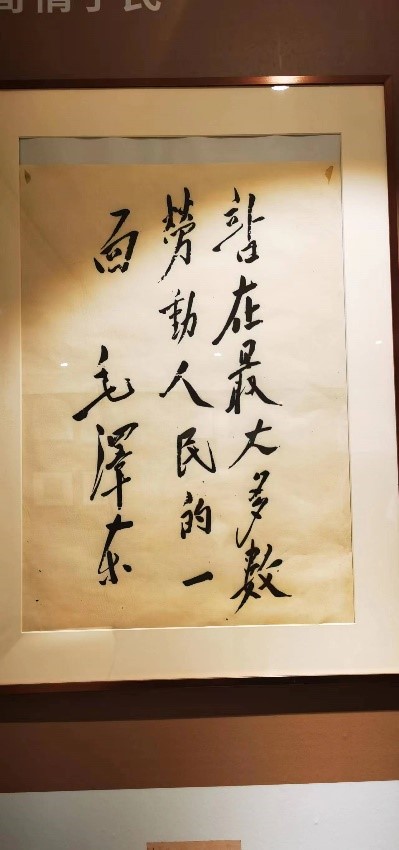 寄情于民
站在最大多数
劳動人民的一
面 毛澤东